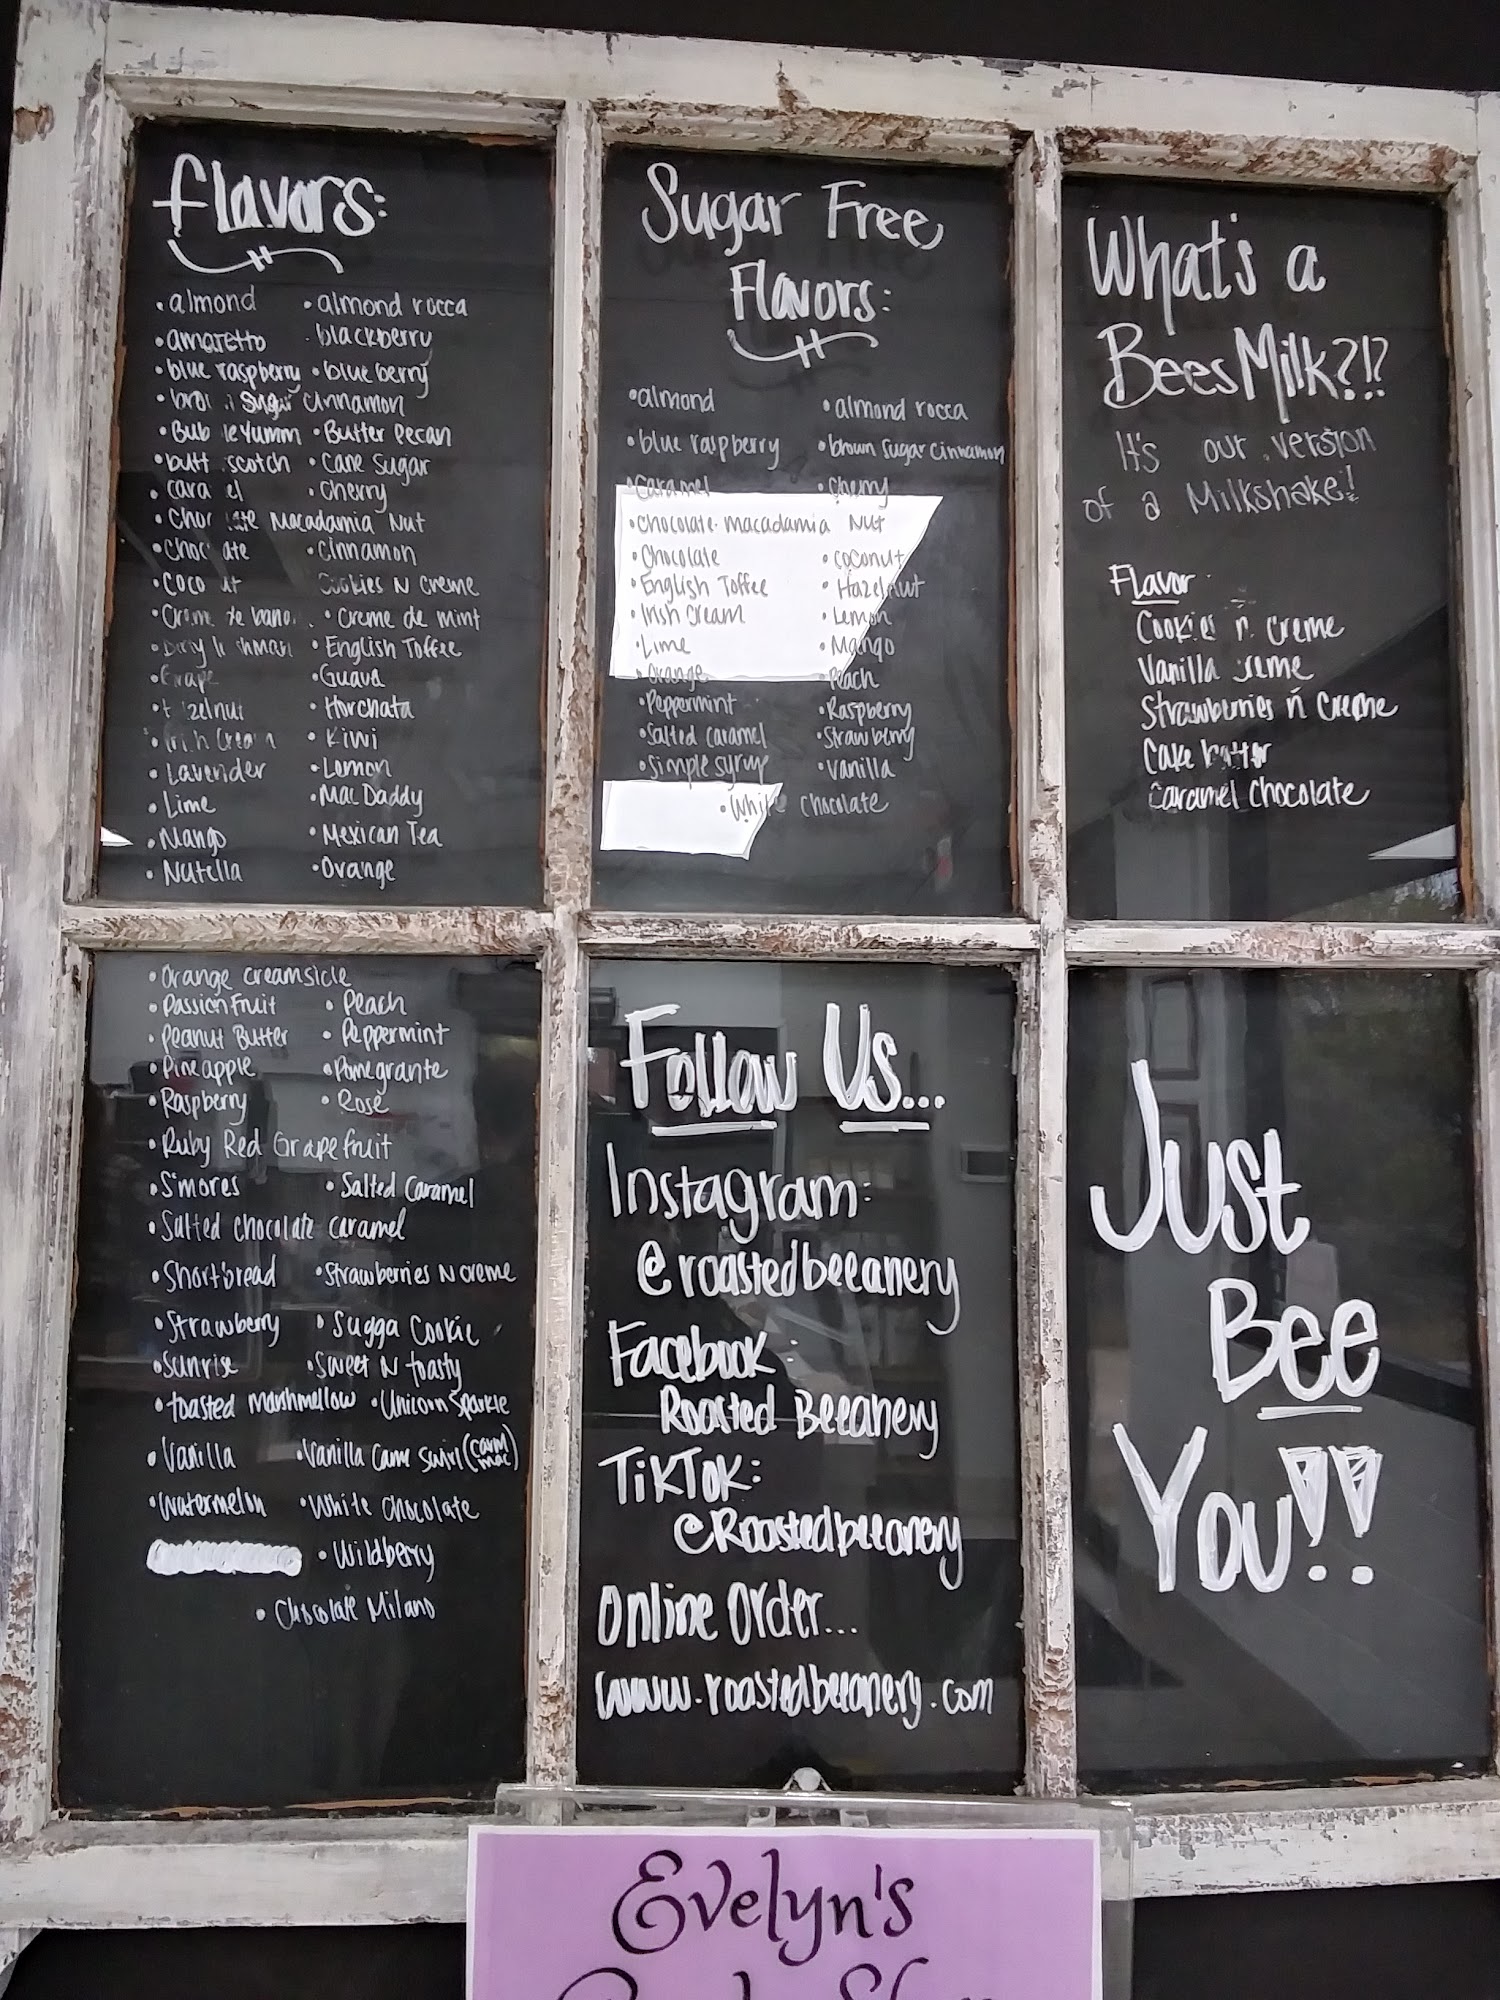 flavors:
• almond • almond rocca
• amaretto • blackberry
• blue raspberry • blueberry
cinnamon
• Butter Pecan
scotch • Cane Sugar
• Cherry
Macadamia Nut
• Cinnamon
Cookies N Creme
• Creme de mint
• English Toffee
• Guava
• Horchata
Cream • Kiwi
• Lavender • Lemon
• Lime • Mac Daddy
• Mango • Mexican Tea
• Nutella • Orange
• Orange Creamsicle
• Passion Fruit • Peach
• Peanut Butter • Peppermint
• Pineapple • Pomegrante
• Raspberry • Rose
• Ruby Red Grapefruit
• S'mores • Salted Caramel
• Salted chocolate caramel
• Shortbread • Strawberries N creme
• Strawberry • Sugga Cookie
• Sunrise • Sweet N toasty
• toasted marshmellow • Unicorn Sparkle
• Vanilla • Vanilla
• Watermelon • White chocolate
• Wildberry
• Chocolate Milano
Sugar Free
Flavors:
• almond • almond rocca
• blue raspberry • brown sugar cinnamon
• Caramel • Cherry
• Chocolate macadamia Nut
• Chocolate • coconut
• English Toffee • Hazelnut
• Irish Cream • Lemon
• Lime • Mango
• Orange • Peach
• Peppermint • Raspberry
• Salted caramel • Strawberry
• Simple syrup • Vanilla
• White Chocolate
What's a
Bees Milk?!?
It's our version
of a Milkshake!
Flavor
Cookies n creme
Vanilla creme
Strawberries n Creme
Cake batter
Caramel Chocolate
Follow Us...
Instagram:
@roastedbeeanery
Facebook:
Roasted Beeanery
TikTok:
@Roastedbeeanery
Online Order...
www.roastedbeeanery.com
Just
Bee
You!!
Evelyn's